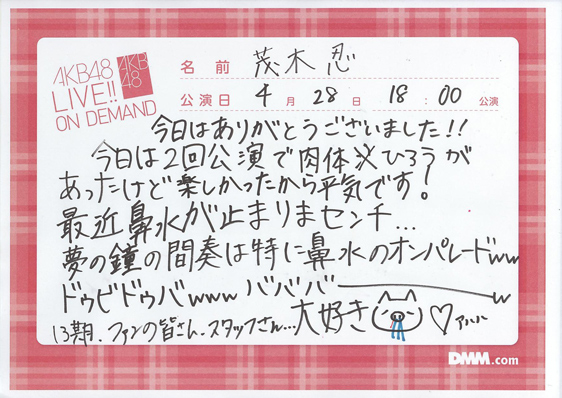 AKB48
LIVE!!
ON DEMAND
AKB
48
名前 茂木 忍
公演日 4月 28日 18:00 公演
今日はありがとうございました!!
今日は2回公演で肉体ひろうが
あったけど楽しかったから平気です!
最近鼻水が止まりまセンチ...
夢の鐘の間奏は特に鼻水のオンパレードww
ドゥビドゥバwww ババババーーーw
13期、ファンの皆さん、スタッフさん...大好き♡
DMM.com